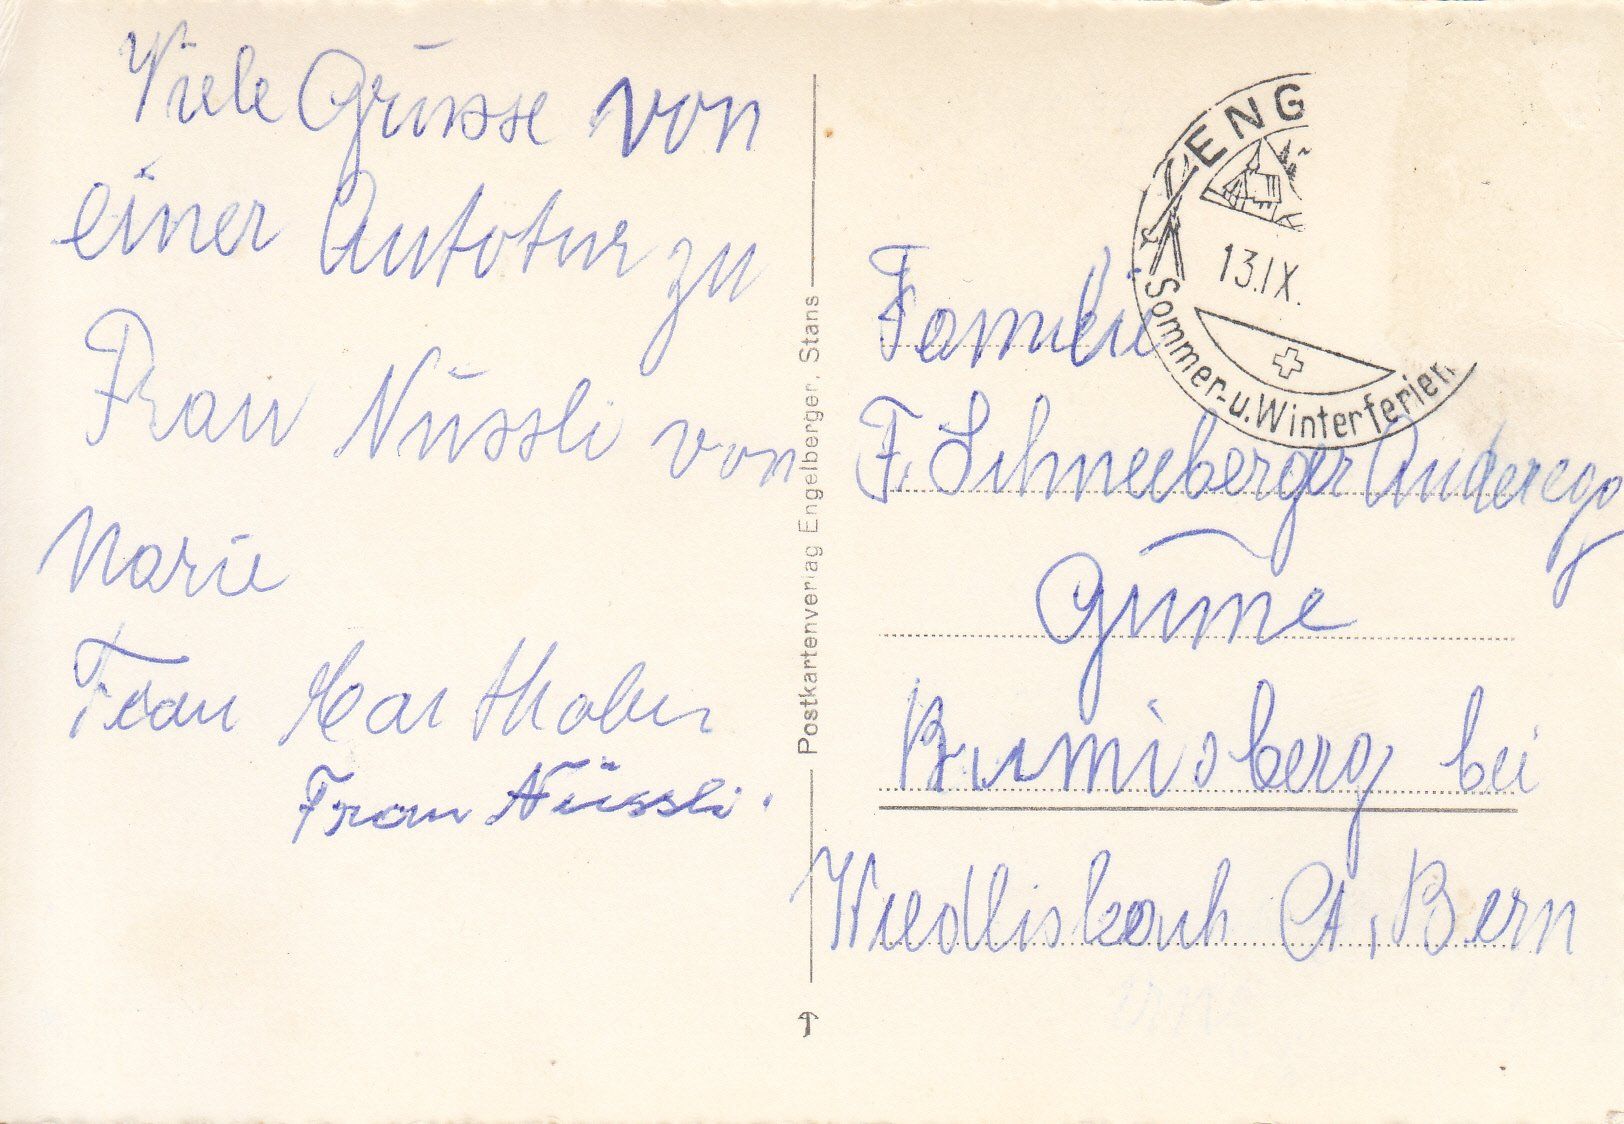 Viele Grüsse von
einer Autotur zu
Frau Nüssli von
Marie
Frau
Frau Nüssli.
Postkartenverlag Engelberger, Stans
ENG
13.IX.
Sommer- u. Winterferien
Familie
F. Schneeberger Anderegg
Bei
Wiedlisbach Ct. Bern